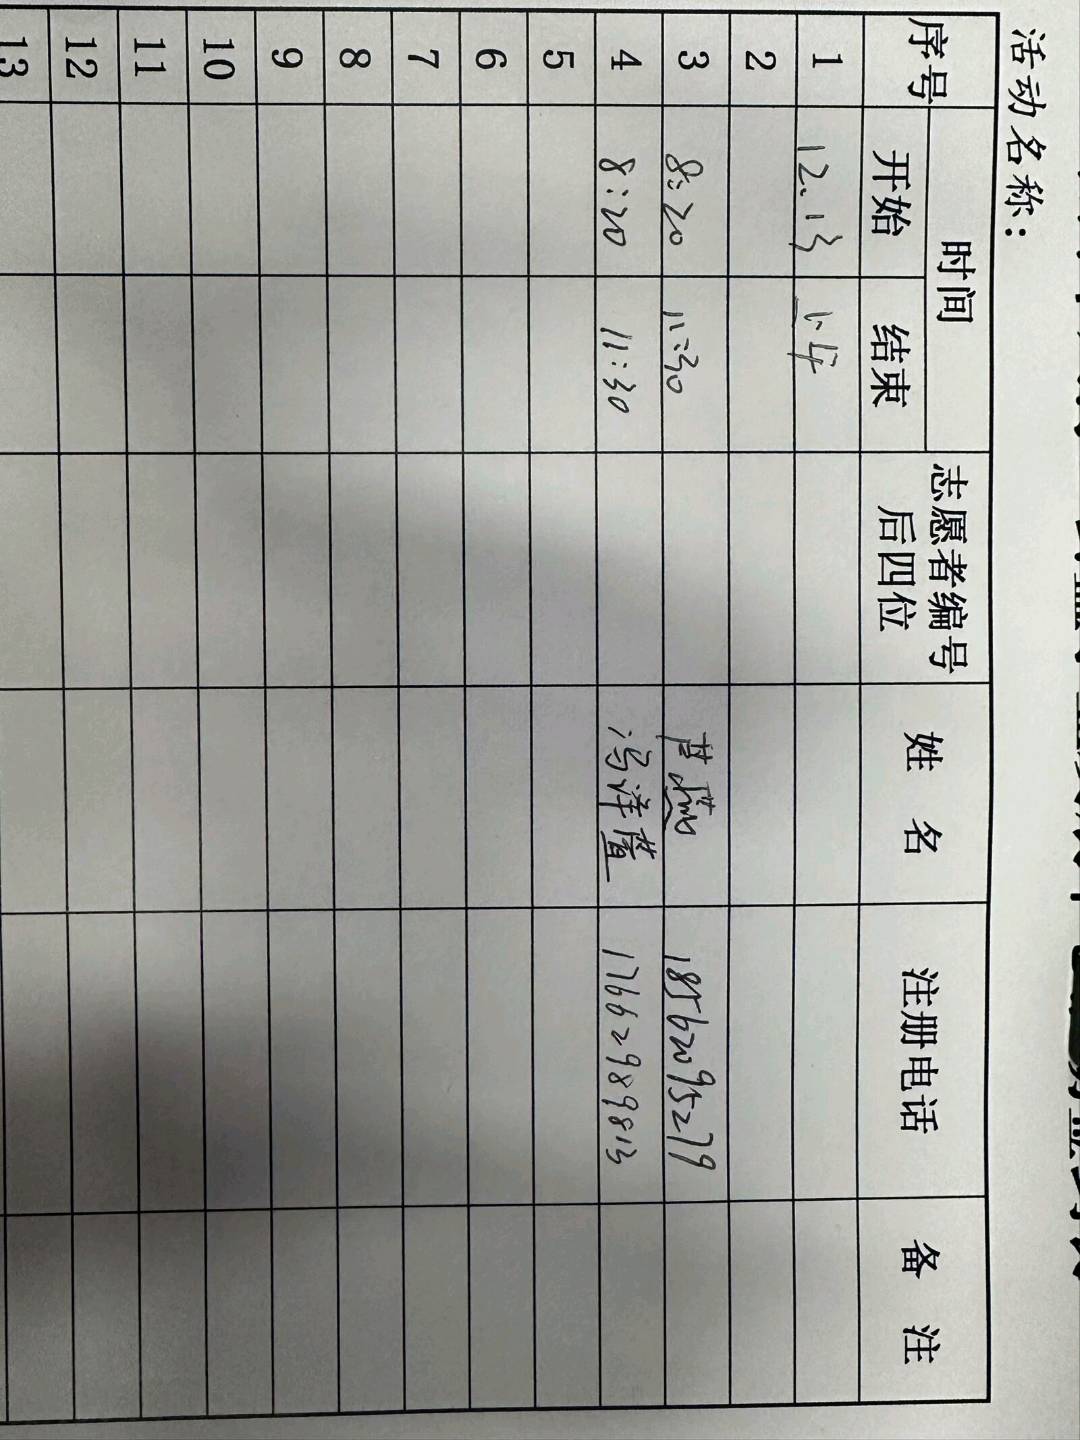 活动名称:
序号 时间 志愿者编号后四位 姓 名 注册电话 备 注
开始 结束
1 12.13 上午
2
3 8:20 11:30 18562095279
4 8:20 11:30 冯洋萱 17662989813
5
6
7
8
9
10
11
12
13